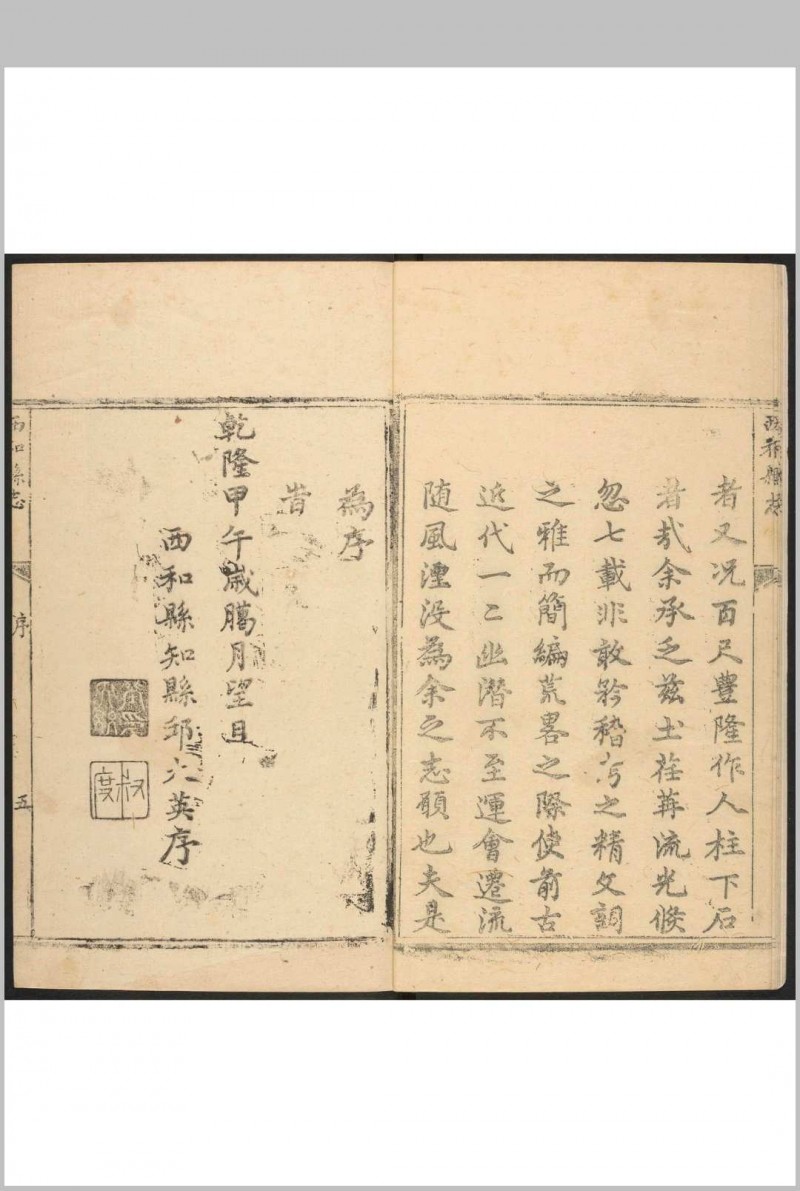 西和縣志
者又况百尺豐隆作人柱下石
者哉余承乏兹土荏苒流光倐
忽七載非敢矜稽考之精文詞
之雅而簡編荒畧之際使前古
近代一二幽潛不至運會遷流
随風湮没為余之志願也夫是
為序
旹
乾隆甲午嵗臈月望旦
西和縣知縣邱大英序
叔度
西和縣志
序
五